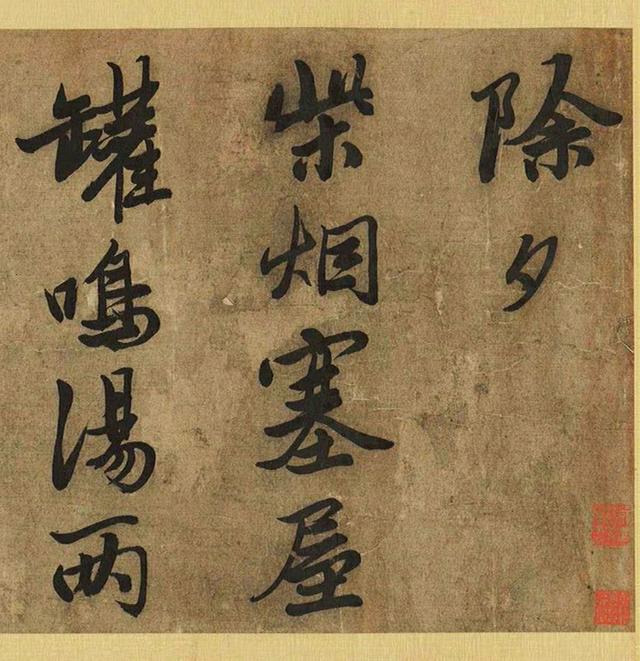 除夕
柴烟塞屋
罐鳴湯两